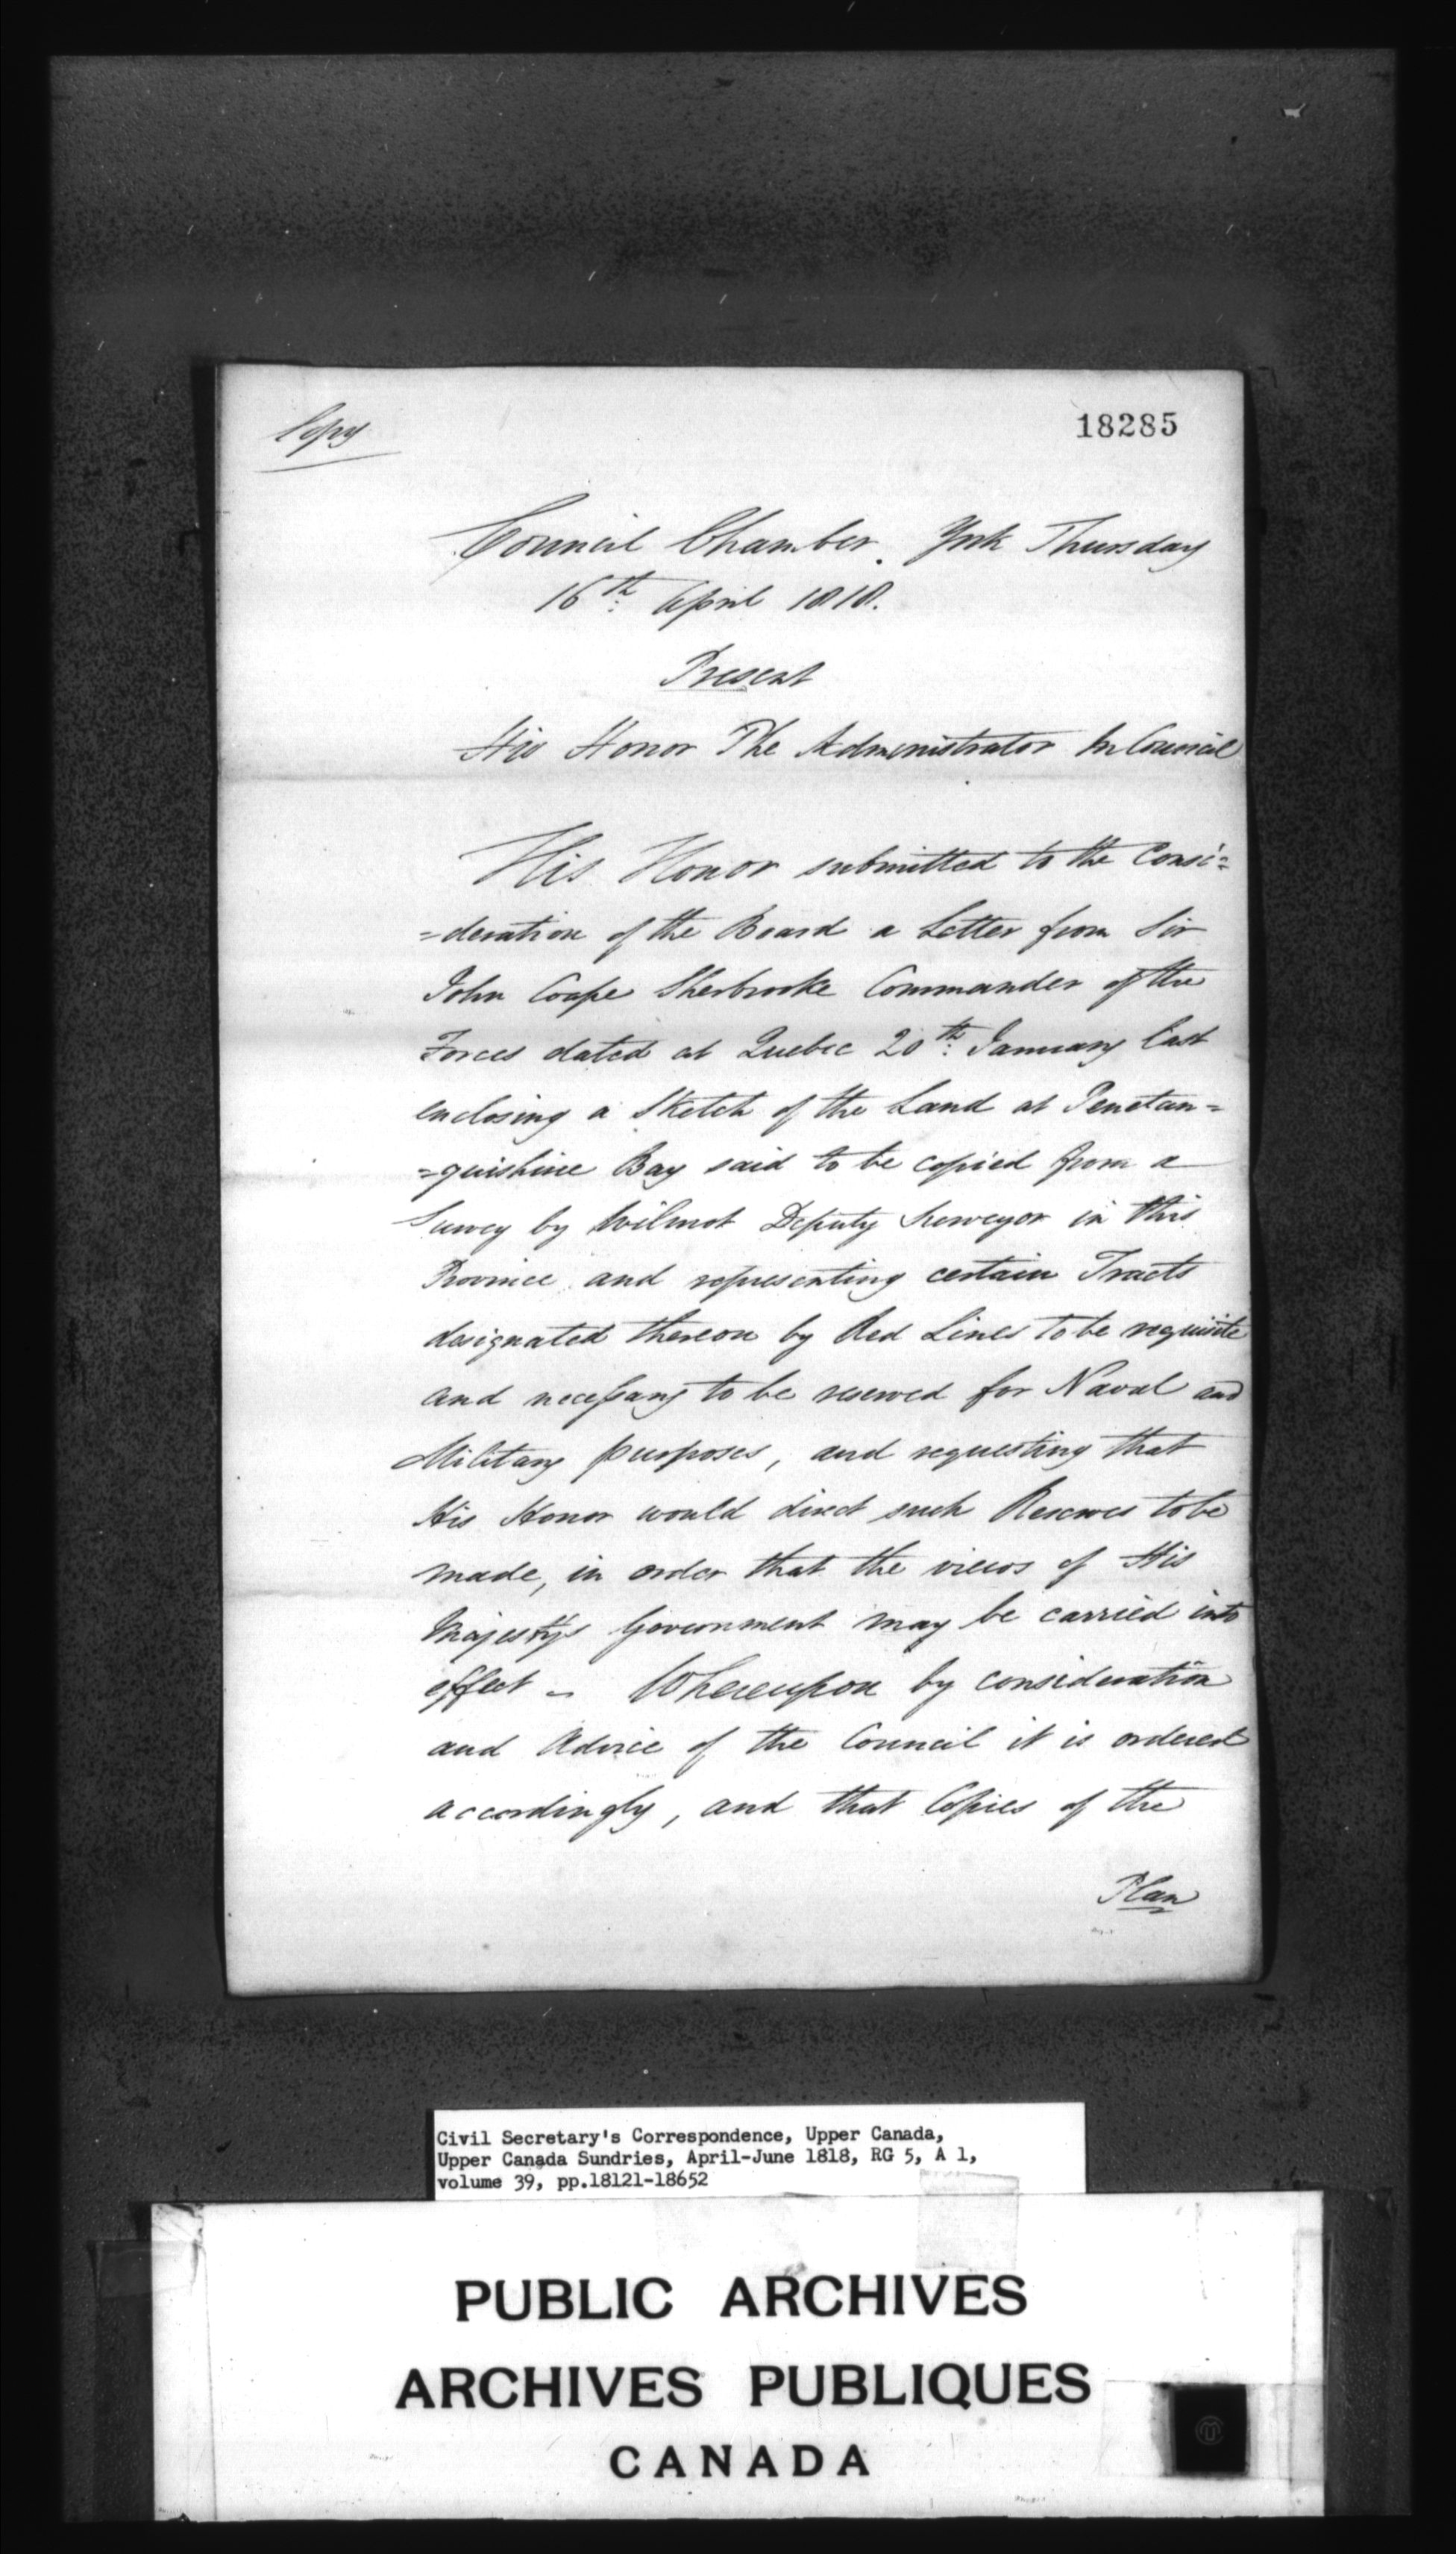 Copy
18285
Council Chamber. York Thursday
16th: April 1818.
Present
His Honor The Administrator In Council
His Honor submitted to the Consi=
=deration of the Board a Letter from Sir
John Coape Sherbrooke Commander of the
Forces dated at Quebec 20th: January last
enclosing a Sketch of the Land at Penetan=
=guishine Bay said to be copied from a
Survey by Wilmot Deputy Surveyor in this
Province and representing certain Tracts
designated thereon by Red Lines to be requisite
and necessary to be reserved for Naval and
Military purposes, and requesting that
His Honor would direct such Reserves to be
made, in order that the views of His
Majesty's Government may be carried into
effect - Whereupon by consideration
and Advice of the Council it is ordered
accordingly, and that Copies of the
Plan
Civil Secretary's Correspondence, Upper Canada,
Upper Canada Sundries, April-June 1818, RG 5, A 1,
volume 39, pp.18121-18652
PUBLIC ARCHIVES
ARCHIVES PUBLIQUES
CANADA